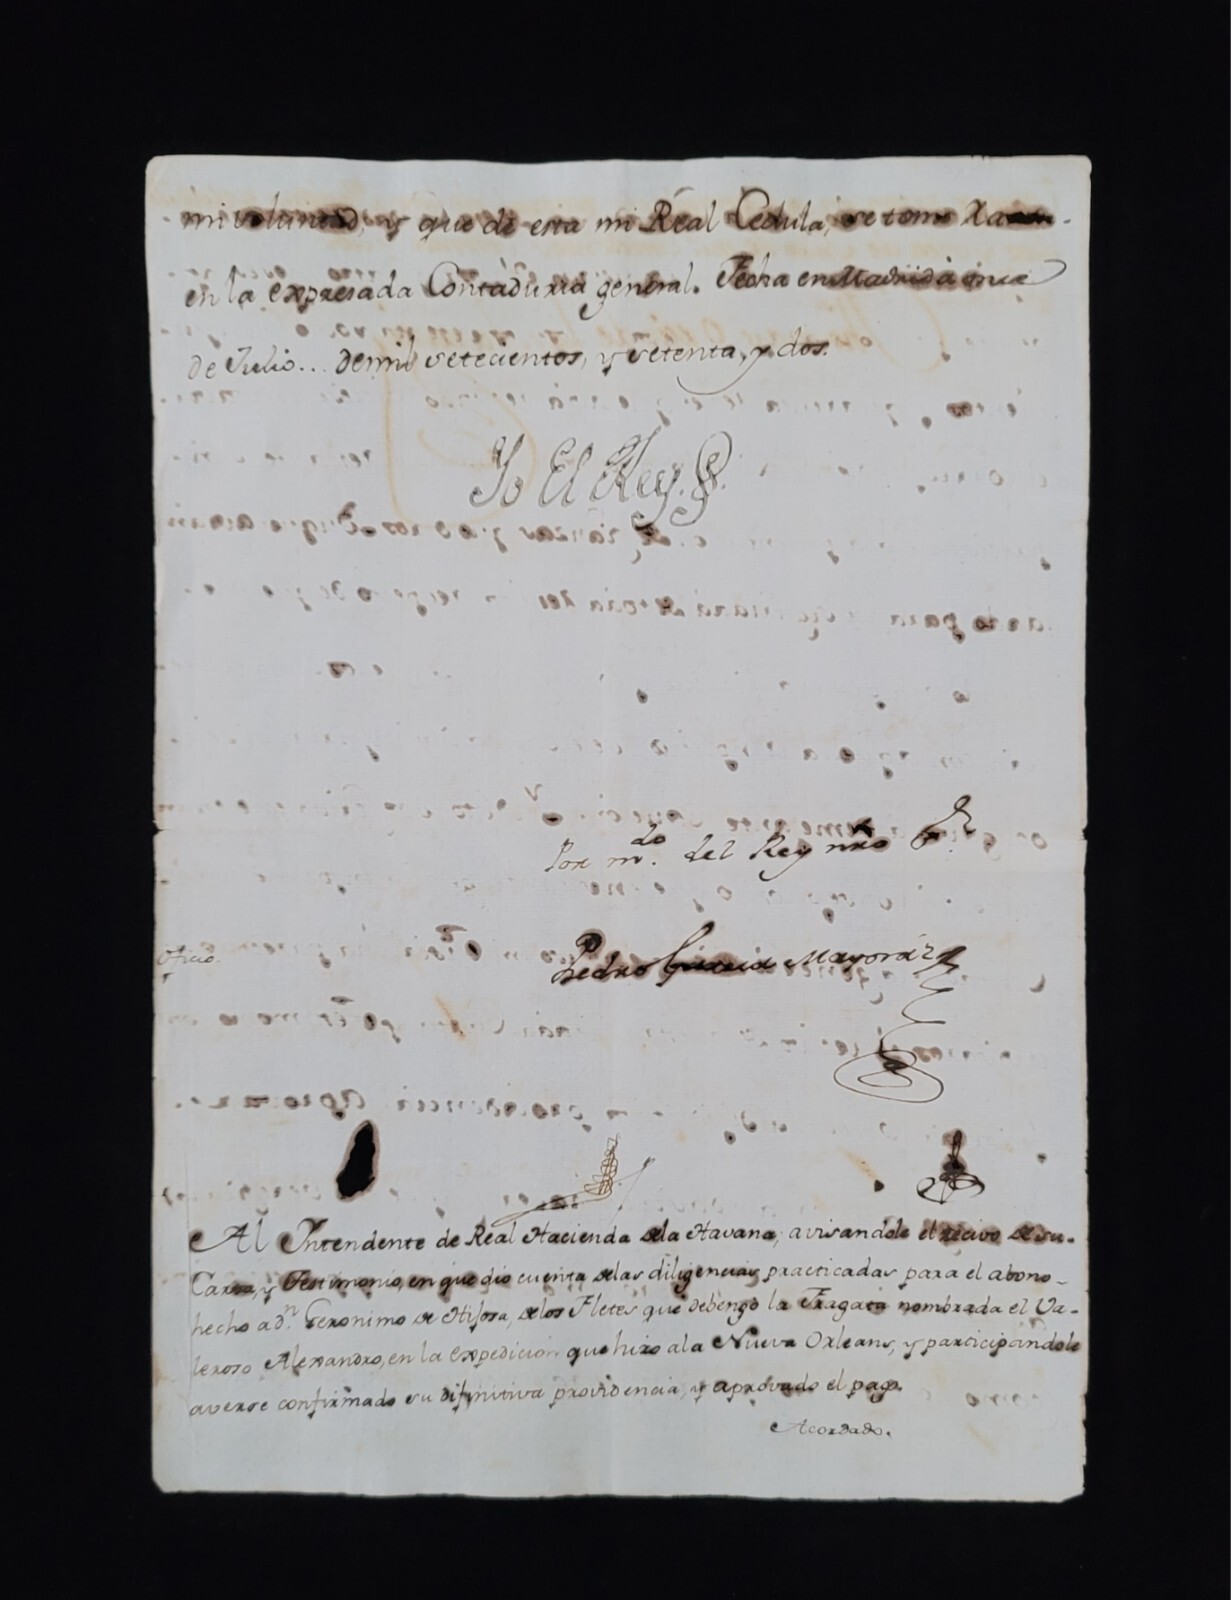 mi voluntad, y que de esta mi Real Cedula, se tome
en la expresada Contaduria general. Fecha en Madrid à
de Julio... de mil setecientos, y setenta, y dos.
Yo El Rey.
Por m.do del Rey nro S.r
Oficio.
Pedro Garcia Mayorál
Al Yntendente de Real Hacienda dela Havana, avisandole el recivo de su
Carta, y Testimonio, en que dio cuenta delas diligencias practicadas para el abono
hecho a d.n Geronimo de Hifosa, delos Fletes que debengo la Fragata nombrada el Va-
leroso Alexandro, en la expedicion que hizo ala Nueva Orleans, y participandole
averse confirmado su difinitiva providencia, y aprovado el pago.
Acordado.